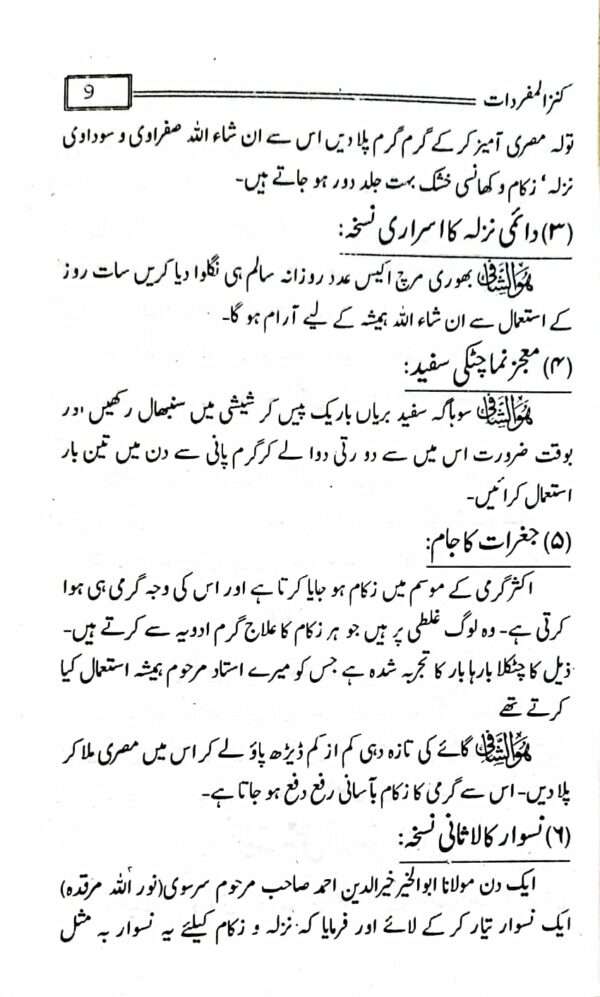 کنزالمفردات 9
تولہ مصری آمیز کر کے گرم گرم پلا دیں اس سے ان شاء اللہ صفراوی و سوداوی
نزلہ‘ زکام و کھانسی خشک بہت جلد دور ہو جاتے ہیں۔
(۳) دائمی نزلہ کا اسراری نسخہ:
ھوالشافی بھوری مرچ اکیس عدد روزانہ سالم ہی نگلوا دیا کریں سات روز
کے استعمال سے ان شاء اللہ ہمیشہ کے لیے آرام ہو گا۔
(۴) معجز نما چٹکی سفید:
ھوالشافی سوہاگہ سفید بریاں باریک پیس کر شیشی میں سنبھال رکھیں اور
بوقت ضرورت اس میں سے دو رتی دوا لے کر گرم پانی سے دن میں تین بار
استعمال کرائیں۔
(۵) جغرات کا جام:
اکثر گرمی کے موسم میں زکام ہو جایا کرتا ہے اور اس کی وجہ گرمی ہی ہوا
کرتی ہے۔ وہ لوگ غلطی پر ہیں جو ہر زکام کا علاج گرم ادویہ سے کرتے ہیں۔
ذیل کا چٹکلا بارہا بار کا تجربہ شدہ ہے جس کو میرے استاد مرحوم ہمیشہ استعمال کیا
کرتے تھے
ھوالشافی گائے کی تازہ دہی کم از کم ڈیڑھ پاؤ لے کر اس میں مصری ملا کر
پلا دیں۔ اس سے گرمی کا زکام بآسانی رفع دفع ہو جاتا ہے۔
(۶) نسوار کا لاثانی نسخہ:
ایک دن مولانا ابوالخیر خیرالدین احمد صاحب مرحوم سرسوی (نور اللہ مرقدہ)
ایک نسوار تیار کر کے لائے اور فرمایا کہ نزلہ و زکام کیلئے یہ نسوار بہ مثل